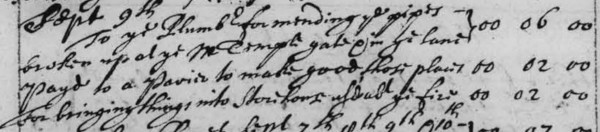 Sept 9th
To ye Plumber for mending ye pipes
broken up at ye M Temple gate & in ye lane 00 06 00
Payd to a Pavier to make good those places 00 02 00
For bringing things into Storehouse ye fire 00 02 00
Sept 7th 8th 9th 10th